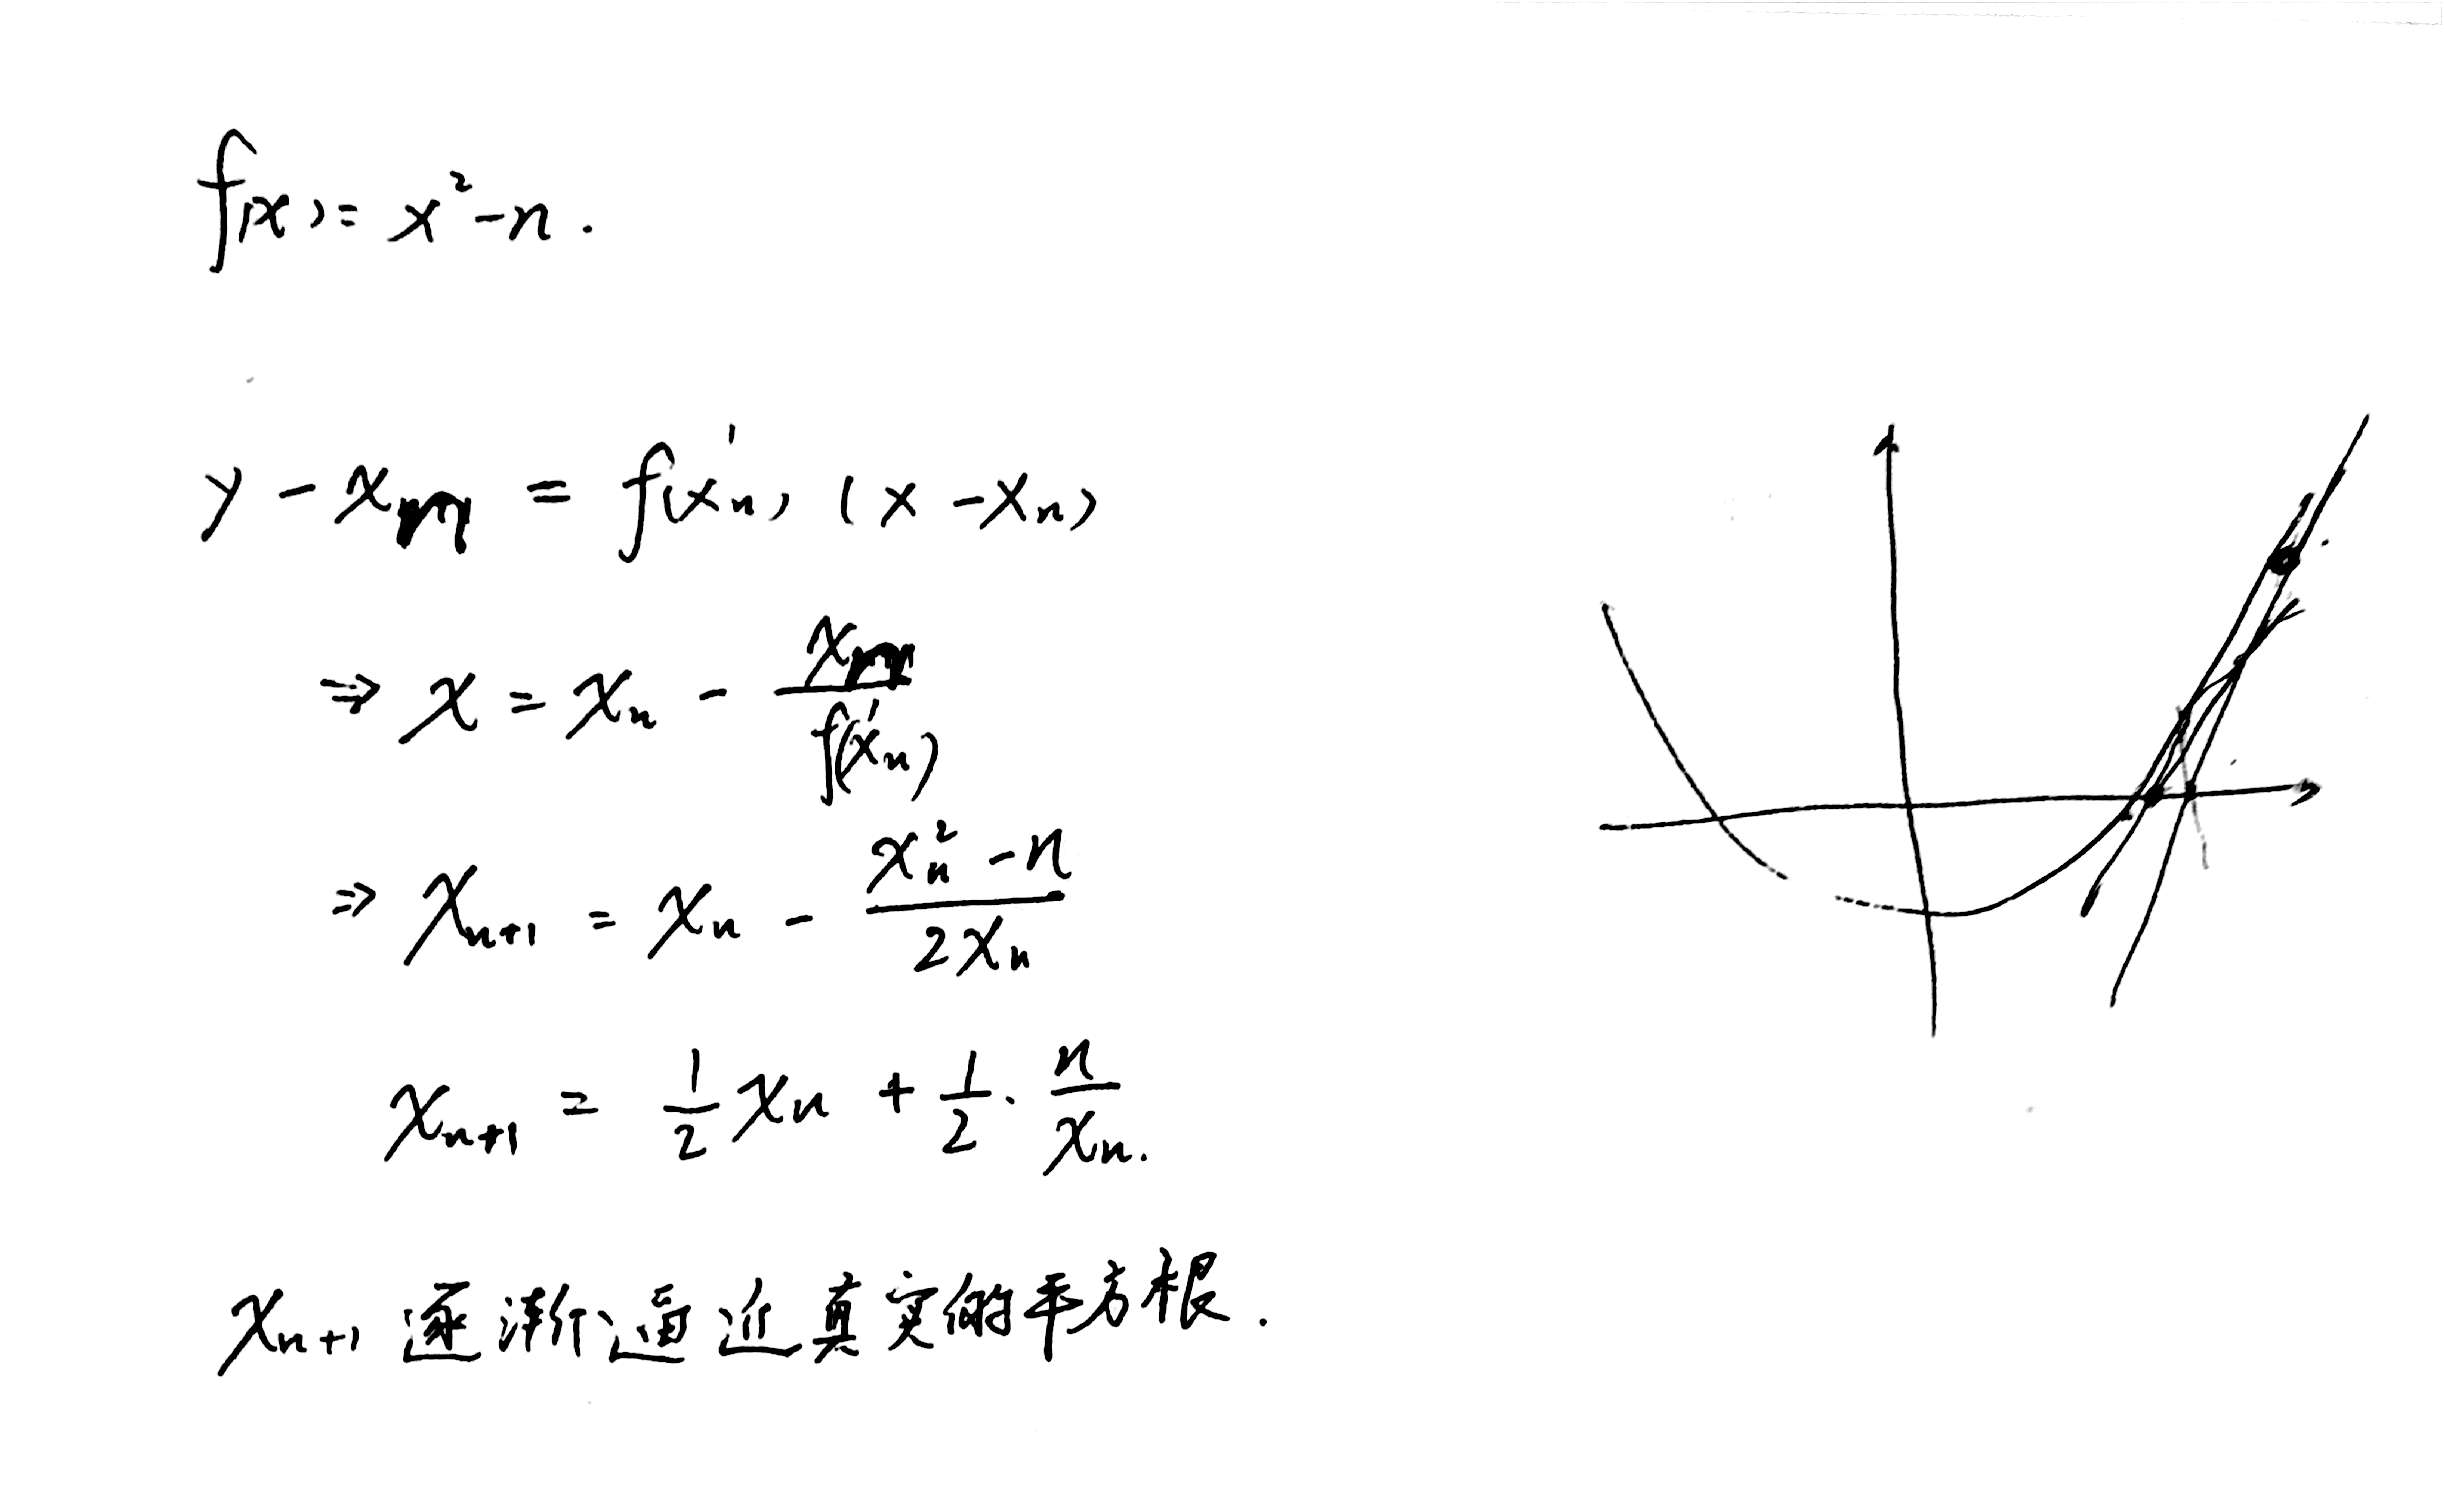 f(x) = x² - n.
y - xₙ = f(x'ₙ) (x - xₙ)
⇒ x = xₙ - xₙ / f'(xₙ)
⇒ xₙ₊₁ = xₙ - (xₙ² - n) / 2xₙ
xₙ₊₁ = 1/2 xₙ + 1/2 · n/xₙ.
xₙ₊₁ 逐渐逼近真实的平方根.